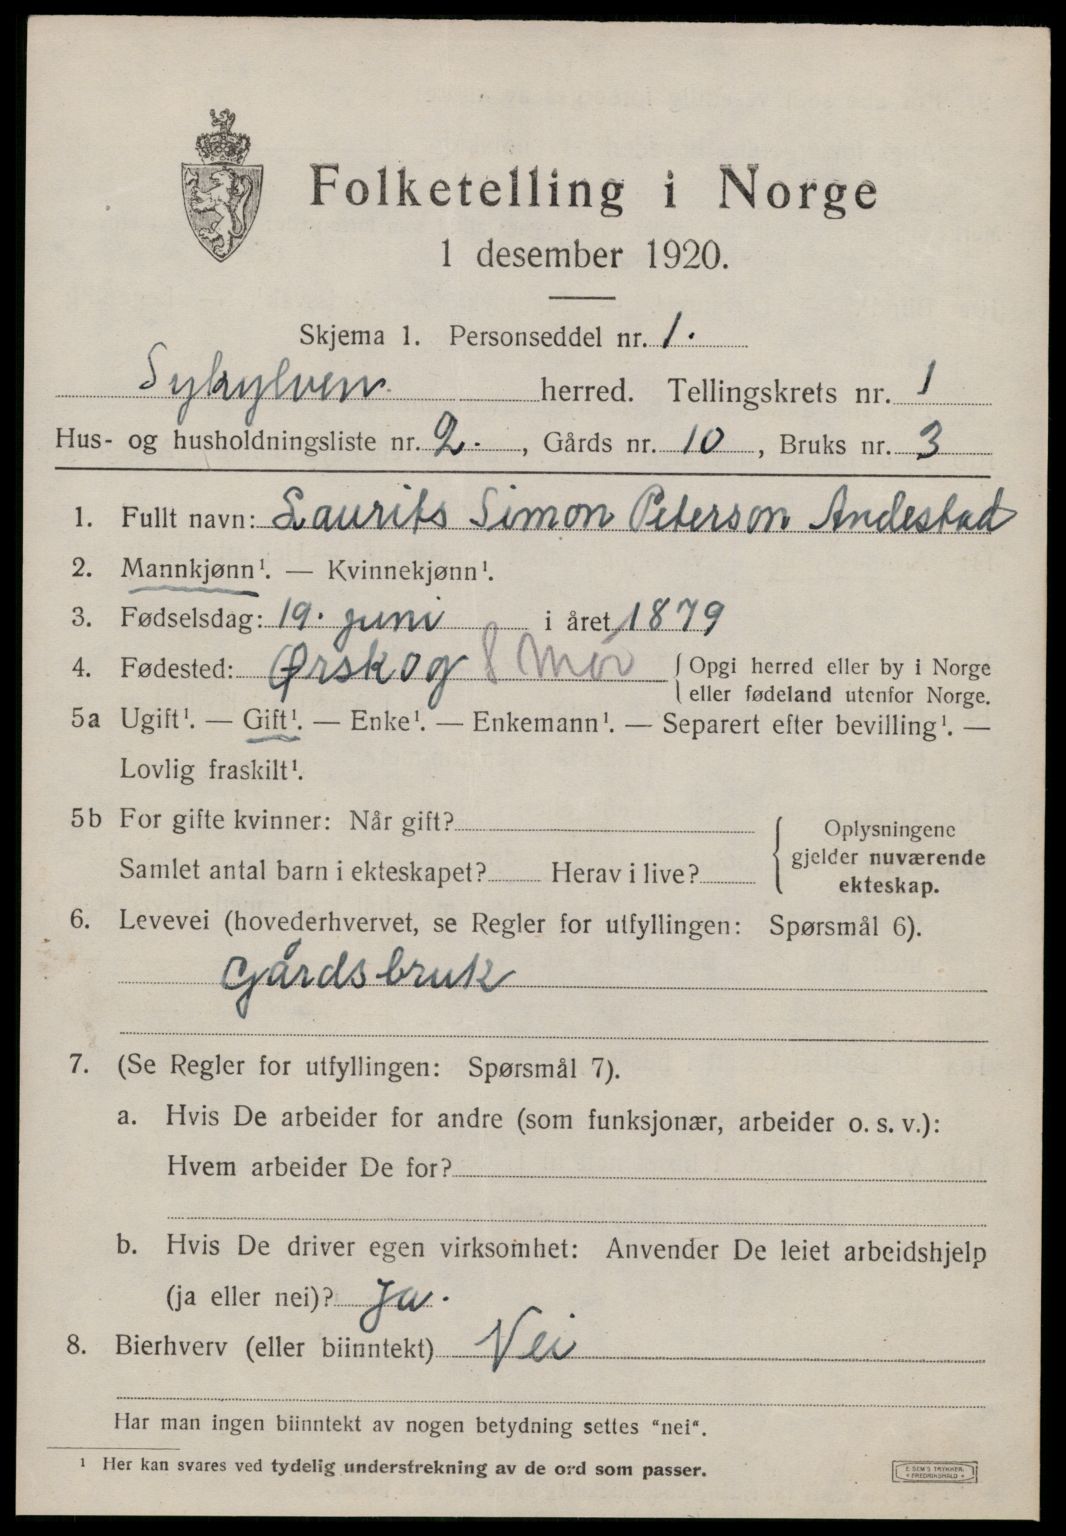 Folketelling i Norge
1 desember 1920.
Skjema 1. Personseddel nr. 1.
Sykylven herred. Tellingskrets nr. 1
Hus- og husholdningsliste nr. 2. , Gårds nr. 10 , Bruks nr. 3
1. Fullt navn: Laurits Simon Peterson Andestad
2. Mannkjønn¹. — Kvinnekjønn¹.
3. Fødselsdag: 19. juni i året 1879
4. Fødested: Ørskog Møv { Opgi herred eller by i Norge
eller fødeland utenfor Norge.
5a Ugift¹. — Gift¹. — Enke¹. — Enkemann¹. — Separert efter bevilling¹. —
Lovlig fraskilt¹.
5b For gifte kvinner: Når gift?
Samlet antal barn i ekteskapet? Herav i live?
{ Oplysningene
gjelder nuværende
ekteskap.
6. Levevei (hovederhvervet, se Regler for utfyllingen: Spørsmål 6).
Gårdsbruk
7. (Se Regler for utfyllingen: Spørsmål 7).
a. Hvis De arbeider for andre (som funksjonær, arbeider o. s. v.):
Hvem arbeider De for?
b. Hvis De driver egen virksomhet: Anvender De leiet arbeidshjelp
(ja eller nei)? Ja.
8. Bierhverv (eller biinntekt) Nei
Har man ingen biinntekt av nogen betydning settes "nei".
¹ Her kan svares ved tydelig understrekning av de ord som passer.
E. SEM'S TRYKKERI
FREDRIKSHALD